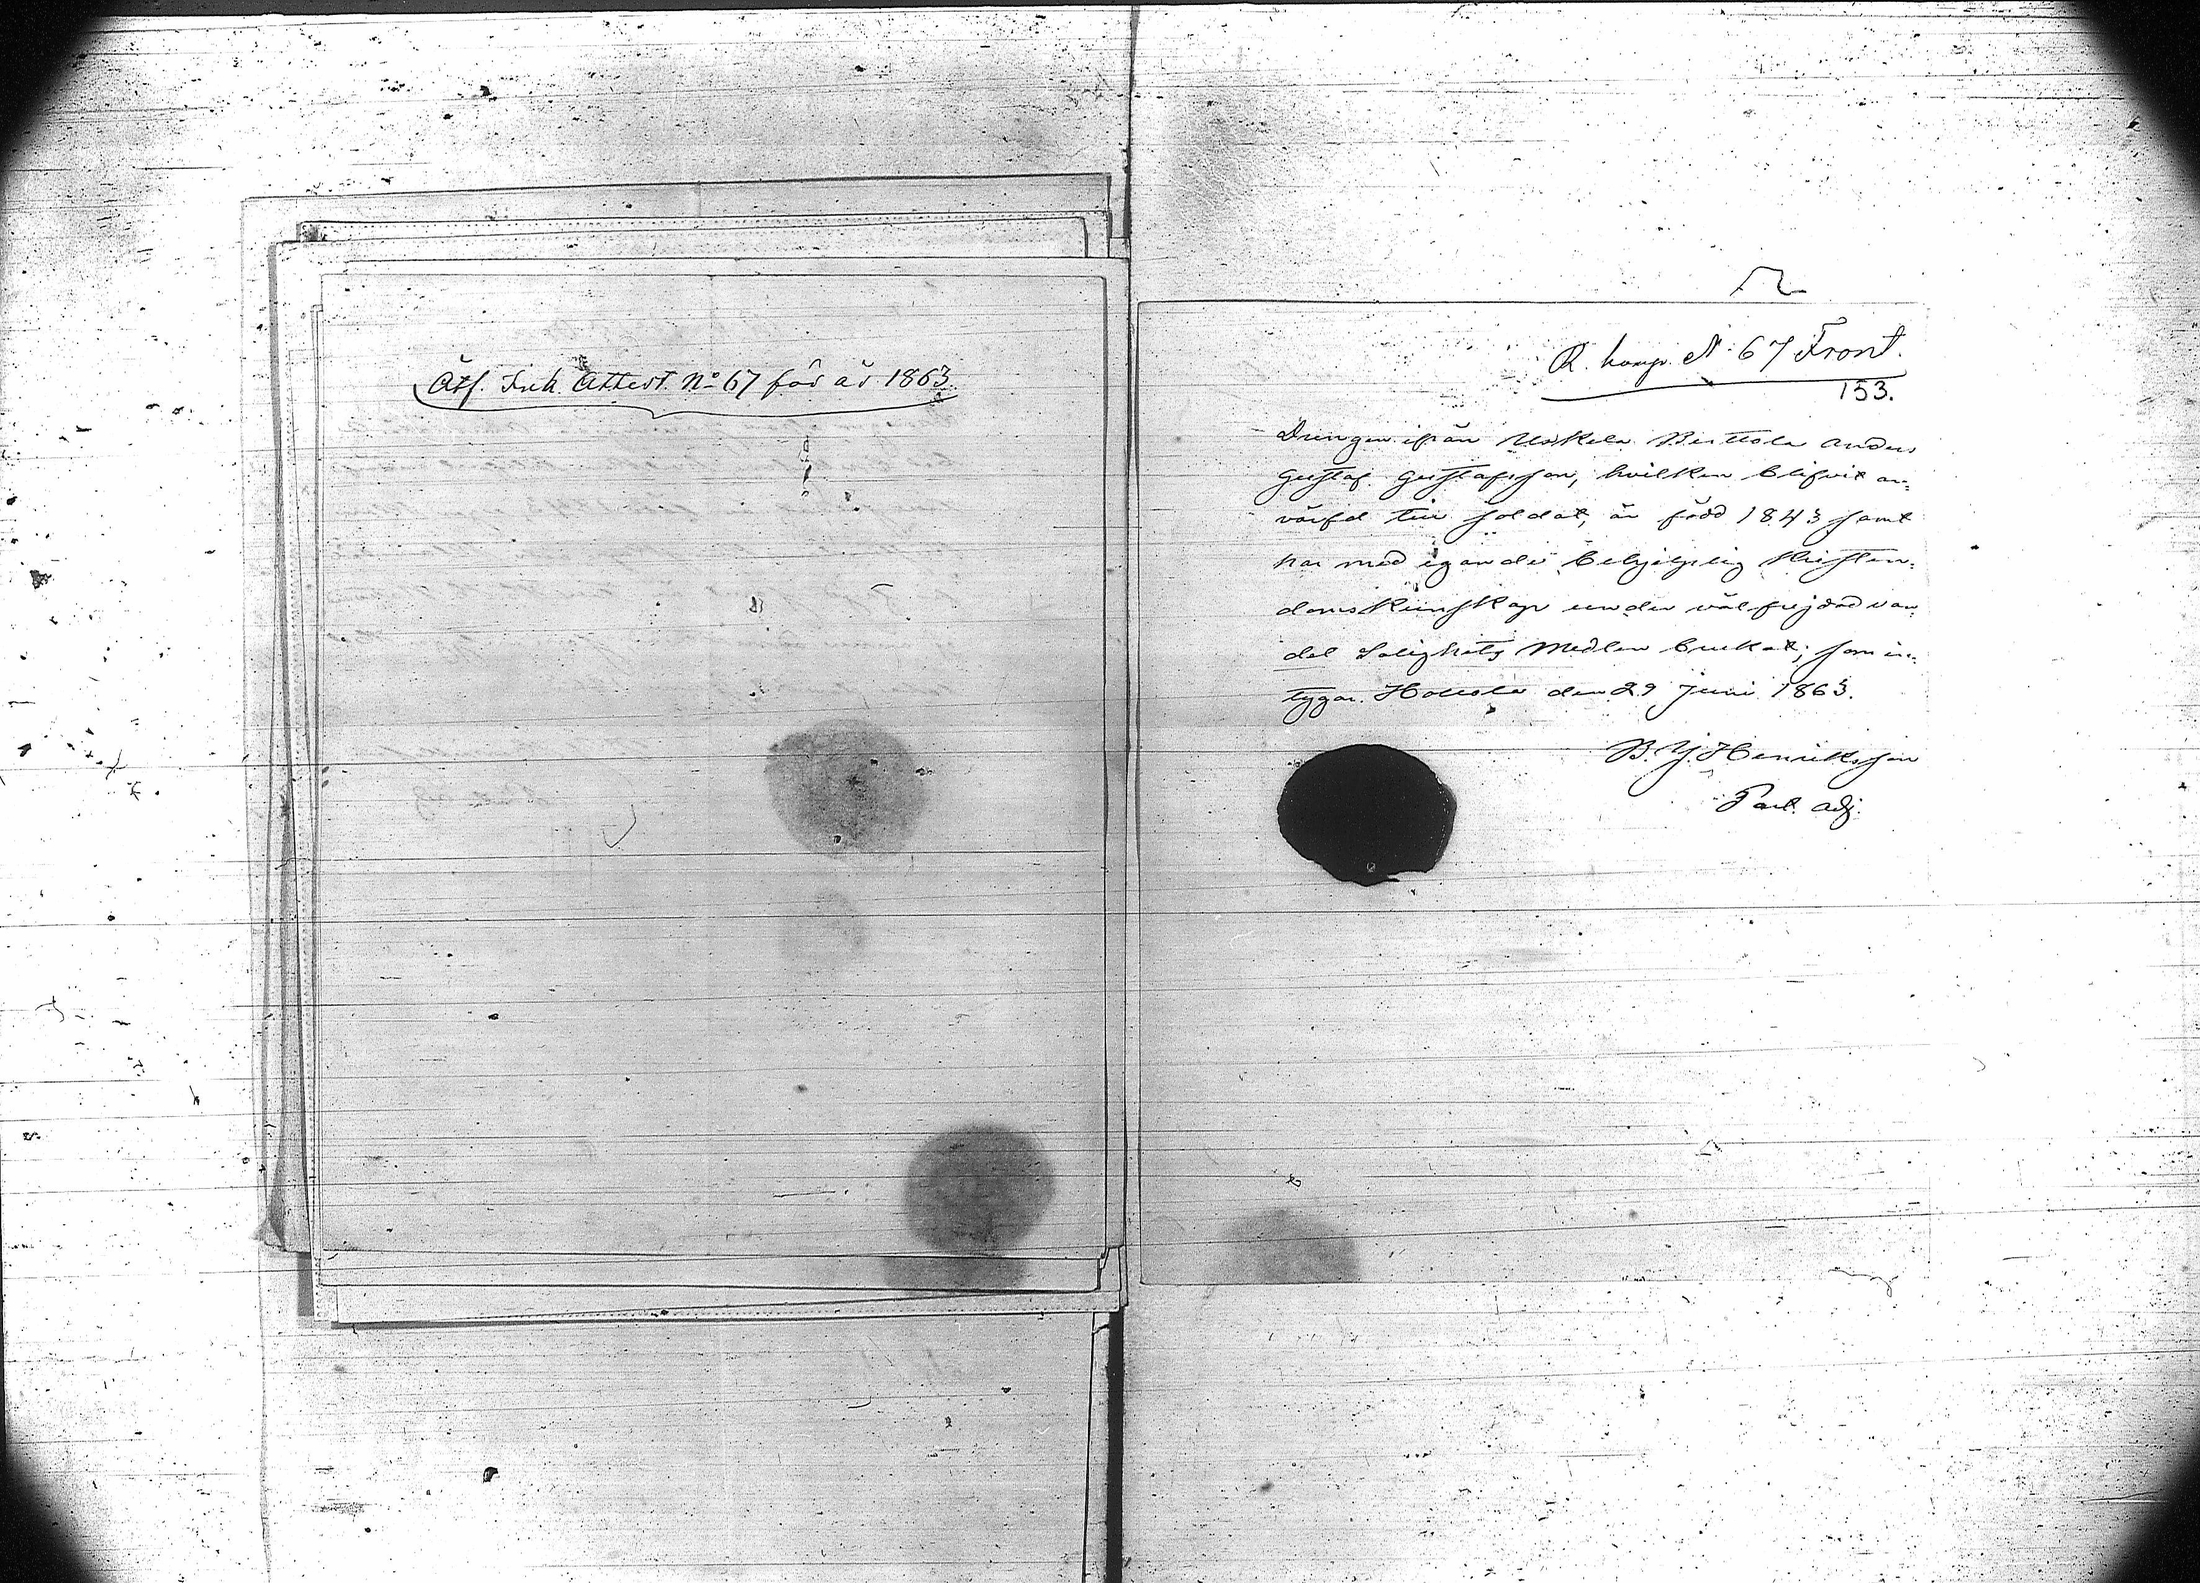 Atf. Inh. Attest. No 67 för år 1863
R. komp. N. 67 Front.
153.
Drengen ifrån Uskela Berttola Anders
Gustaf Gustafsson, hvilken blifvit an-
värfd till soldat, är född 1843 samt
har med egande behjelplig Kristen-
doms Kunskap under välfrejdad van-
del Salighets Medlen brukat; som in-
tygar. Hollola den 29 Juni 1863.
B. J. Henriksson
Past. adj.